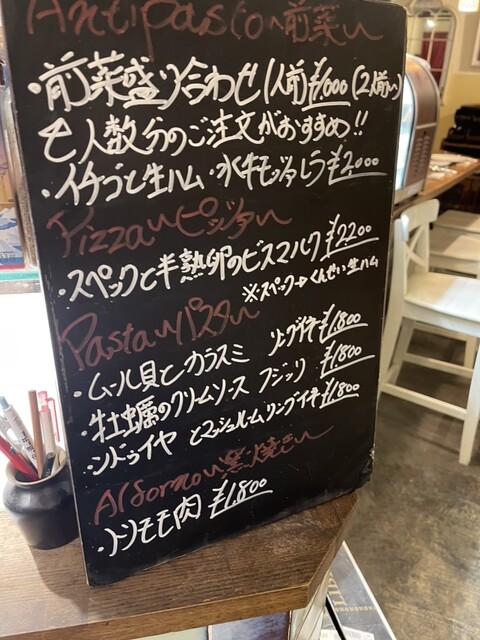 Antipasto 〜前菜〜
・前菜盛り合わせ(1人前)¥1000(2人前〜)
Ⓔ人数分のご注文がおすすめ!!
・イチゴと生ハム・水牛モッツァレラ ¥2,000
Pizza〜ピッツァ〜
・スペックと半熟卵のビスマルク ¥2200
※スペック→くんせい生ハム
Pasta〜パスタ〜
・ムール貝とカラスミ リングイネ ¥1,800
・牡蠣のクリムソース フジッリ ¥1,800
・ンドゥイヤ とマッシュルーム リングイネ ¥1,800
Al forno〜窯焼き〜
・トリモモ肉 ¥1,800